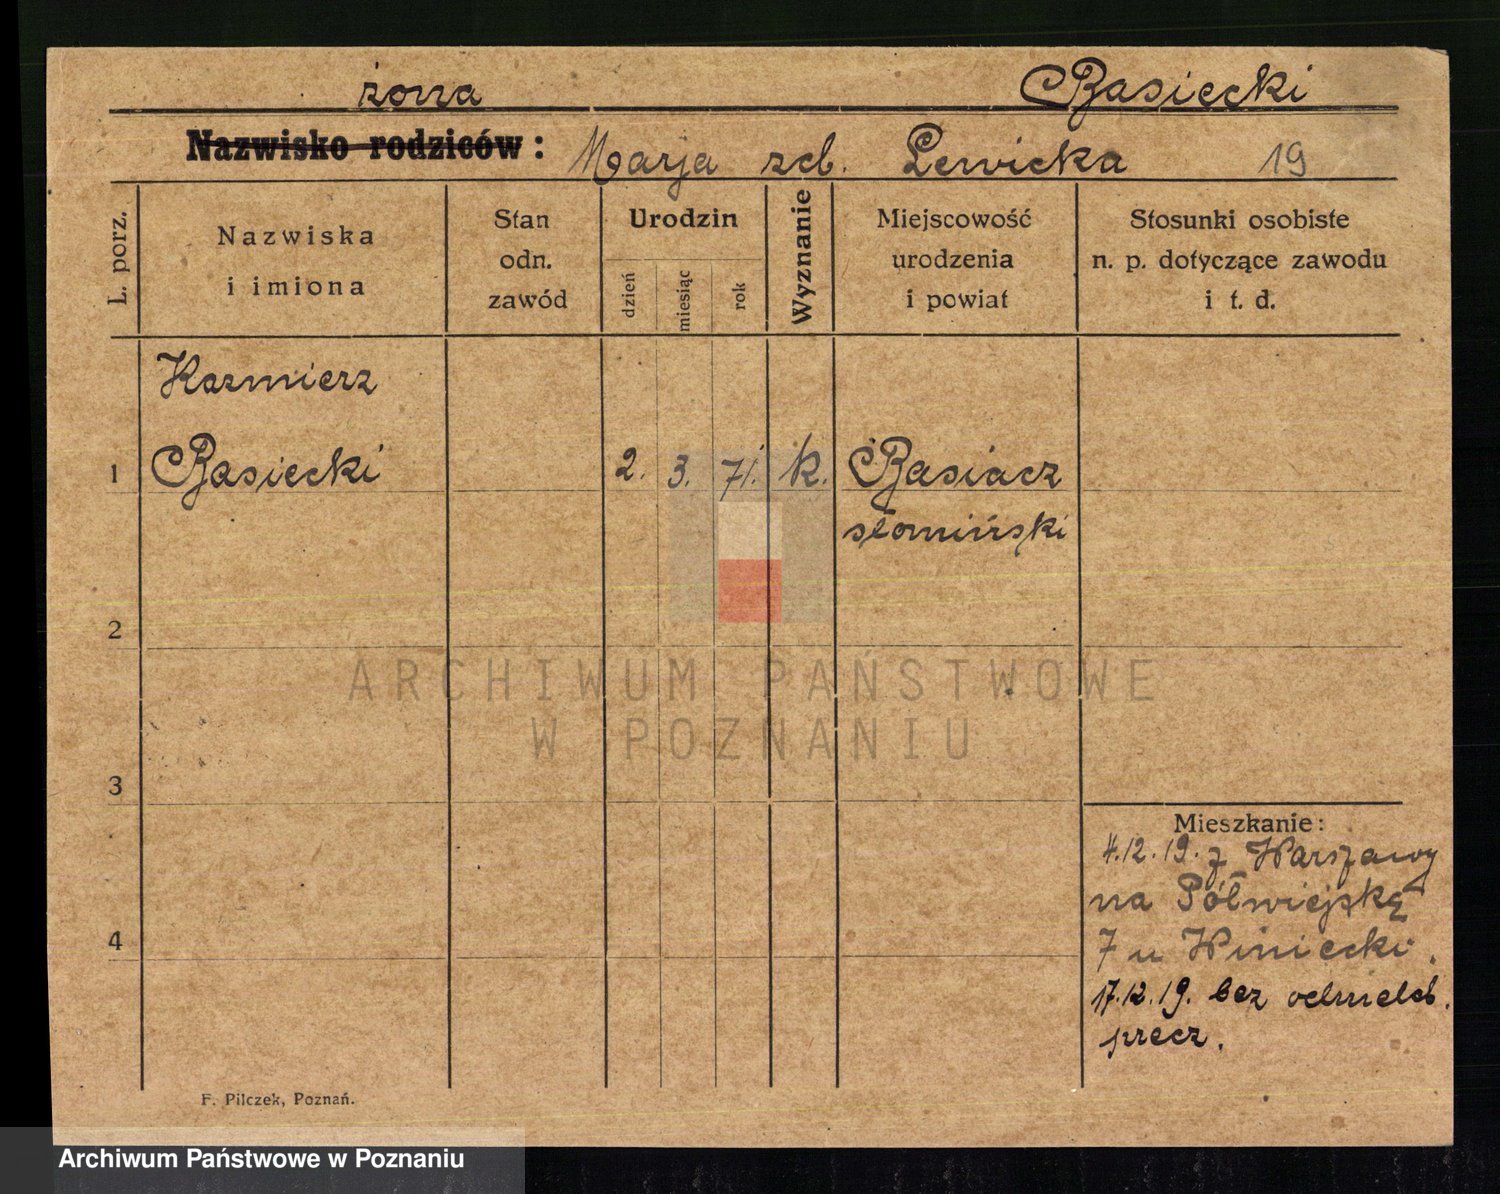 żona Basiecki
Nazwisko rodziców: Marja zeb. Lewicka 19
L. porz.
Nazwiska
i imiona
Stan
odn.
zawód
Urodzin
dzień
miesiąc
rok
Wyznanie
Miejscowość
urodzenia
i powiat
Stosunki osobiste
n. p. dotyczące zawodu
i t. d.
Kazmierz
1 Basiecki 2. 3. 71. k. Basiacz
słomiński
2
ARCHIWUM PAŃSTWOWE
W POZNANIU
3
Mieszkanie:
4.12.19. z Warszawy
na Półwiejską
4
7 u Winiecki.
17.12.19. bez odmeld.
precz.
F. Pilczek, Poznań.
Archiwum Państwowe w Poznaniu